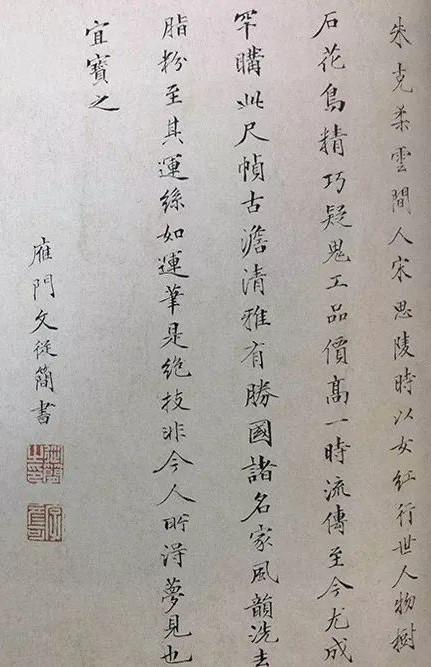 朱克柔雲間人宋思陵時以女紅行世人物樹
石花鳥精巧疑鬼工品價髙一時流傳至今尤成
罕購此尺幀古澹清雅有勝國諸名家風韻洗去
脂粉至其運絲如運筆是絶技非今人所得夢見也
宜寶之
雁門文從簡書
從簡之印